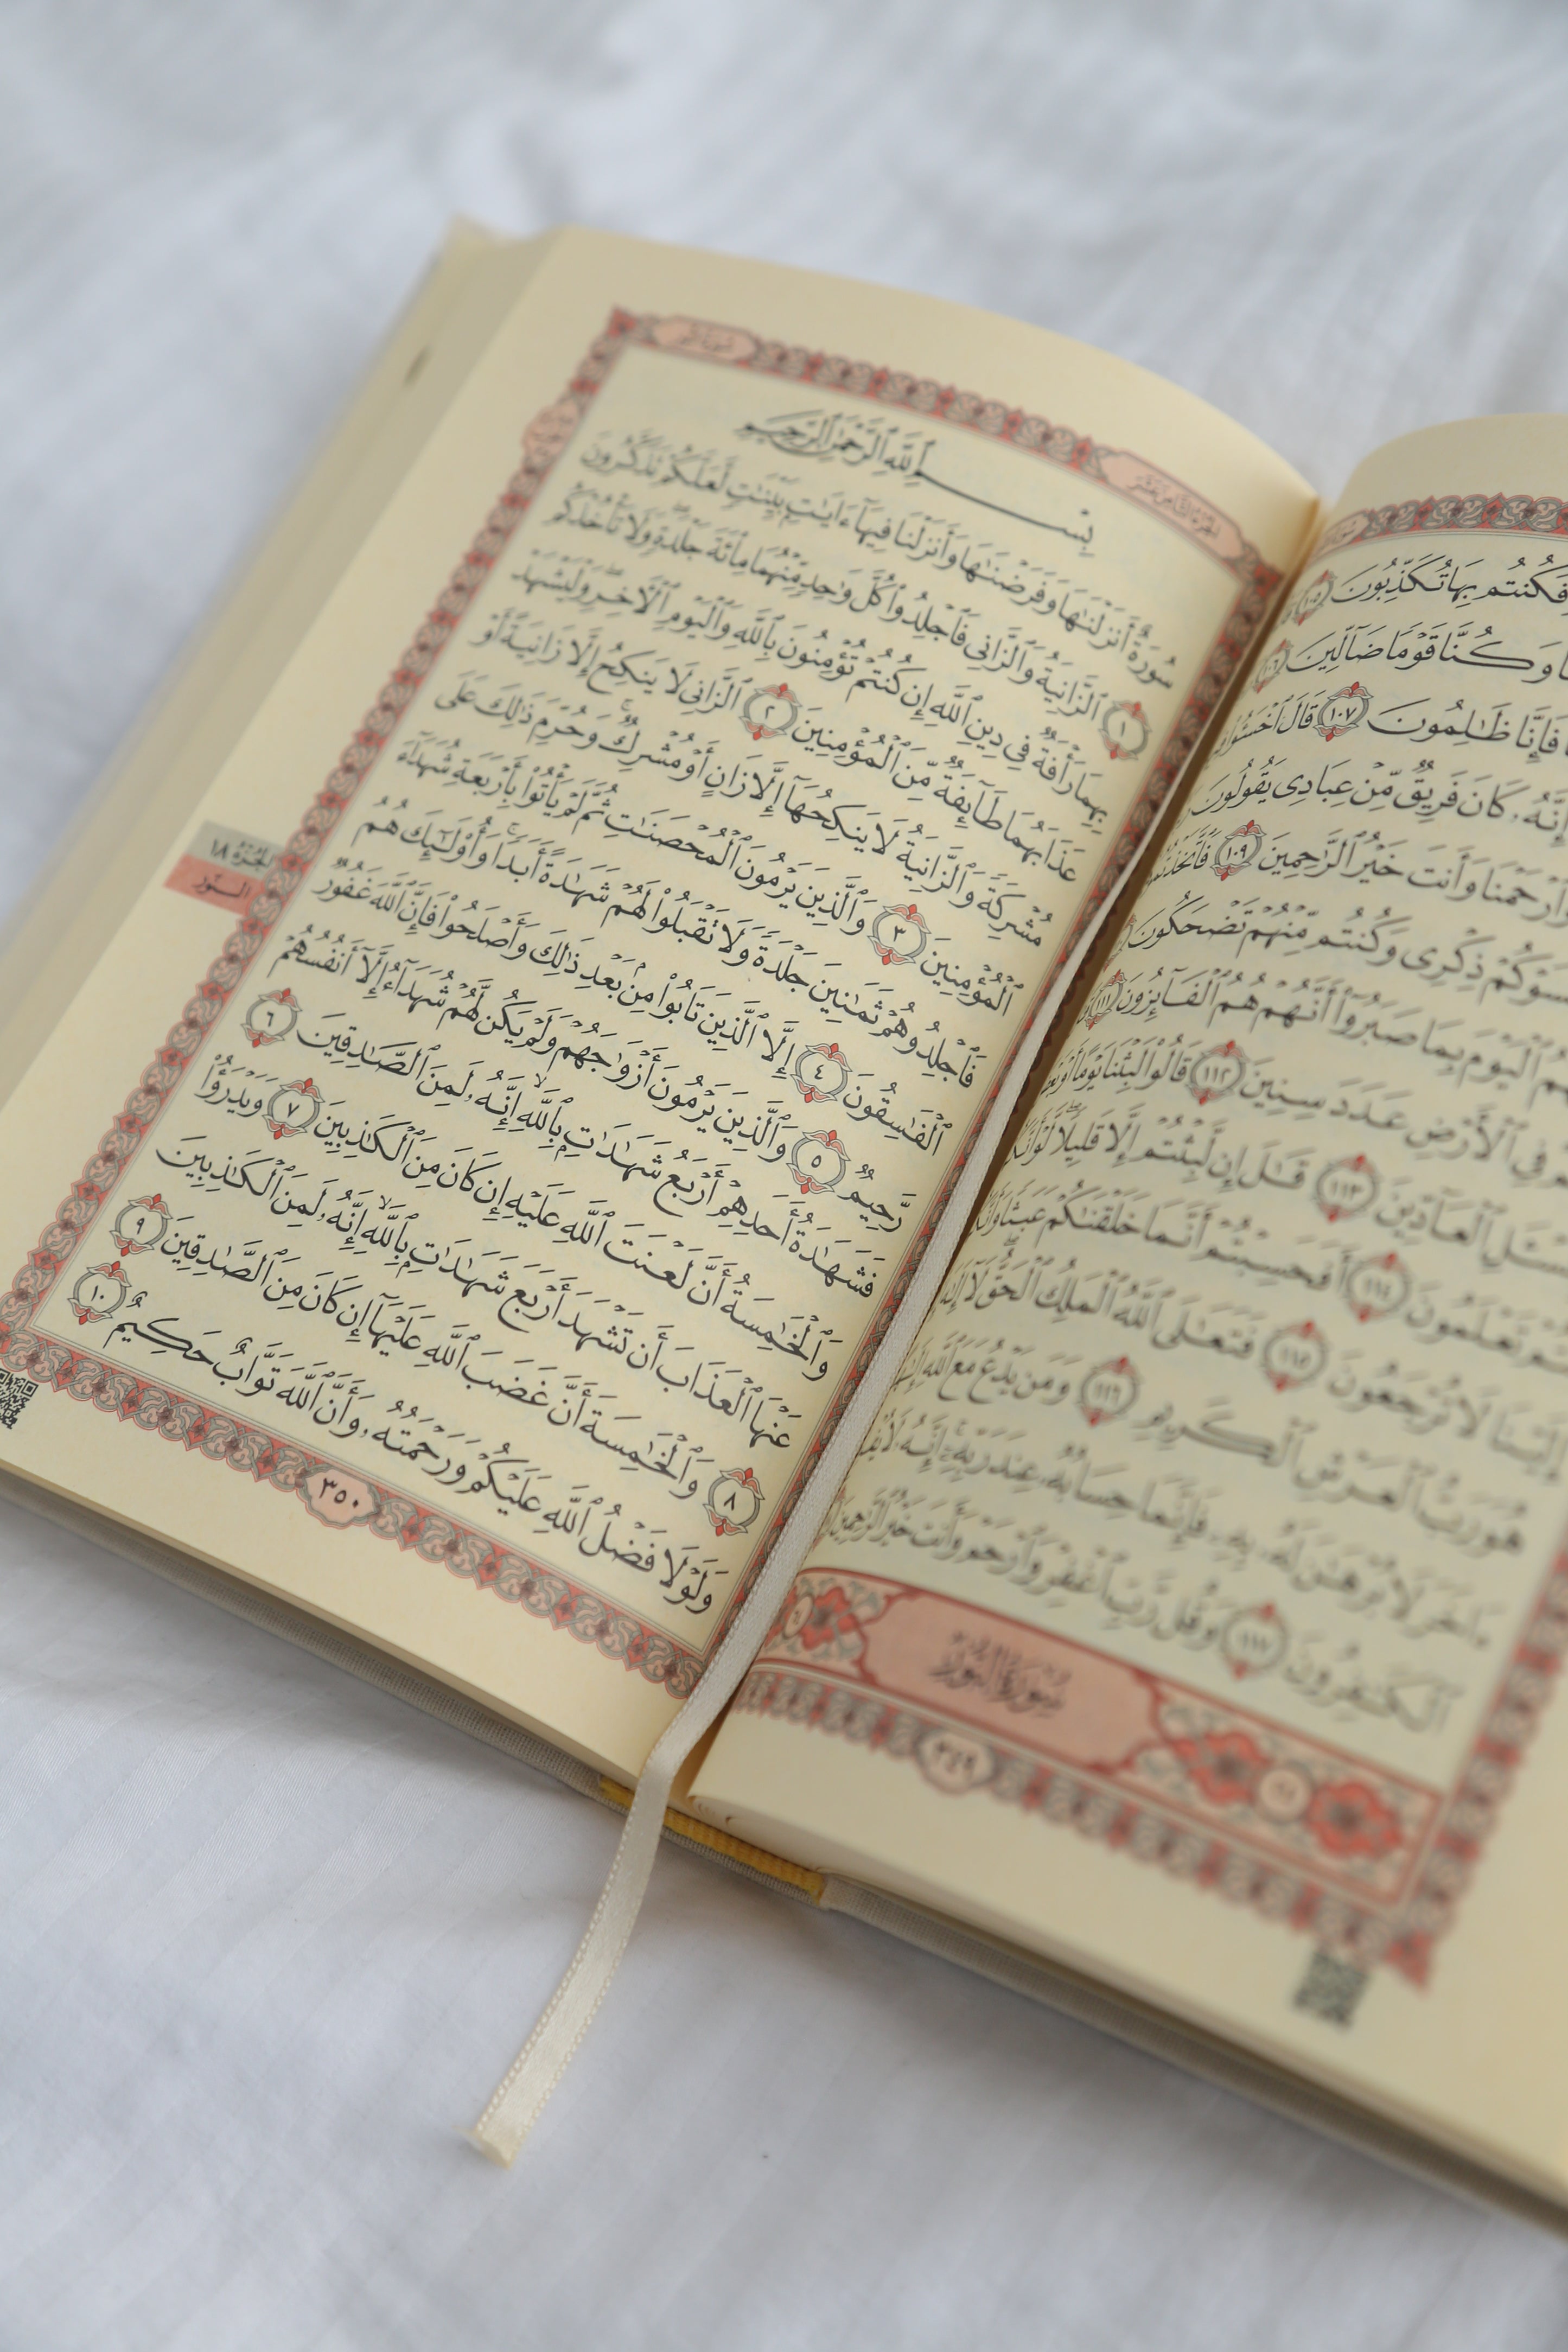 فَكُنتُم بِهَا تُكَذِّبُونَ ١٠٥
وَكُنَّا قَوْمًا ضَآلِّينَ ١٠٦
فَإِنَّا ظَٰلِمُونَ ١٠٧ قَالَ ٱخْسَـُٔوا۟
إِنَّهُۥ كَانَ فَرِيقٌ مِّنْ عِبَادِى يَقُولُونَ
وَٱرْحَمْنَا وَأَنتَ خَيْرُ ٱلرَّٰحِمِينَ ١٠٩
ذِكْرِى وَكُنتُم مِّنْهُمْ تَضْحَكُونَ
ٱلْيَوْمَ بِمَا صَبَرُوٓا۟ أَنَّهُمْ هُمُ ٱلْفَآئِزُونَ ١١١
فِى ٱلْأَرْضِ عَدَدَ سِنِينَ ١١٢ قَالُوا۟ لَبِثْنَا يَوْمًا أَوْ
ٱلْعَآدِّينَ ١١٣ قَٰلَ إِن لَّبِثْتُمْ إِلَّا قَلِيلًا لَّوْ
تَعْلَمُونَ ١١٤ أَفَحَسِبْتُمْ أَنَّمَا خَلَقْنَٰكُمْ عَبَثًا
إِلَيْنَا لَا تُرْجَعُونَ ١١٥ فَتَعَٰلَى ٱللَّهُ ٱلْمَلِكُ ٱلْحَقُّ لَآ إِلَٰهَ
هُوَ رَبُّ ٱلْعَرْشِ ٱلْكَرِيمِ ١١٦ وَمَن يَدْعُ مَعَ ٱللَّهِ
ءَاخَرَ لَا بُرْهَٰنَ لَهُۥ بِهِۦ فَإِنَّمَا حِسَابُهُۥ عِندَ رَبِّهِۦٓ إِنَّهُۥ لَا
ٱلْكَٰفِرُونَ ١١٧ وَقُل رَّبِّ ٱغْفِرْ وَٱرْحَمْ وَأَنتَ خَيْرُ ٱلرَّٰحِمِينَ
سُورَةُ النُّورِ
٣٤٩
الجزء الثامن عشر
بِسْمِ ٱللَّهِ ٱلرَّحْمَٰنِ ٱلرَّحِيمِ
سُورَةٌ أَنزَلْنَٰهَا وَفَرَضْنَٰهَا وَأَنزَلْنَا فِيهَآ ءَايَٰتٍۭ بَيِّنَٰتٍ لَّعَلَّكُمْ تَذَكَّرُونَ
١ ٱلزَّانِيَةُ وَٱلزَّانِى فَٱجْلِدُوا۟ كُلَّ وَٰحِدٍ مِّنْهُمَا مِا۟ئَةَ جَلْدَةٍ وَلَا تَأْخُذْكُم
بِهِمَا رَأْفَةٌ فِى دِينِ ٱللَّهِ إِن كُنتُمْ تُؤْمِنُونَ بِٱللَّهِ وَٱلْيَوْمِ ٱلْءَاخِرِ وَلْيَشْهَدْ
عَذَابَهُمَا طَآئِفَةٌ مِّنَ ٱلْمُؤْمِنِينَ ٢ ٱلزَّانِى لَا يَنكِحُ إِلَّا زَانِيَةً أَوْ
مُشْرِكَةً وَٱلزَّانِيَةُ لَا يَنكِحُهَآ إِلَّا زَانٍ أَوْ مُشْرِكٌ وَحُرِّمَ ذَٰلِكَ عَلَى
ٱلْمُؤْمِنِينَ ٣ وَٱلَّذِينَ يَرْمُونَ ٱلْمُحْصَنَٰتِ ثُمَّ لَمْ يَأْتُوا۟ بِأَرْبَعَةِ شُهَدَآءَ
فَٱجْلِدُوهُمْ ثَمَٰنِينَ جَلْدَةً وَلَا تَقْبَلُوا۟ لَهُمْ شَهَٰدَةً أَبَدًا وَأُو۟لَٰٓئِكَ هُمُ
ٱلْفَٰسِقُونَ ٤ إِلَّا ٱلَّذِينَ تَابُوا۟ مِنۢ بَعْدِ ذَٰلِكَ وَأَصْلَحُوا۟ فَإِنَّ ٱللَّهَ غَفُورٌ
رَّحِيمٌ ٥ وَٱلَّذِينَ يَرْمُونَ أَزْوَٰجَهُمْ وَلَمْ يَكُن لَّهُمْ شُهَدَآءُ إِلَّآ أَنفُسُهُمْ
فَشَهَٰدَةُ أَحَدِهِمْ أَرْبَعُ شَهَٰدَٰتٍۭ بِٱللَّهِ إِنَّهُۥ لَمِنَ ٱلصَّٰدِقِينَ ٦
وَٱلْخَٰمِسَةُ أَنَّ لَعْنَتَ ٱللَّهِ عَلَيْهِ إِن كَانَ مِنَ ٱلْكَٰذِبِينَ ٧ وَيَدْرَؤُا۟
عَنْهَا ٱلْعَذَابَ أَن تَشْهَدَ أَرْبَعَ شَهَٰدَٰتٍۭ بِٱللَّهِ إِنَّهُۥ لَمِنَ ٱلْكَٰذِبِينَ
٨ وَٱلْخَٰمِسَةَ أَنَّ غَضَبَ ٱللَّهِ عَلَيْهَآ إِن كَانَ مِنَ ٱلصَّٰدِقِينَ ٩
وَلَوْلَا فَضْلُ ٱللَّهِ عَلَيْكُمْ وَرَحْمَتُهُۥ وَأَنَّ ٱللَّهَ تَوَّابٌ حَكِيمٌ ١٠
٣٥٠
الجُزْءُ ١٨
النُّور